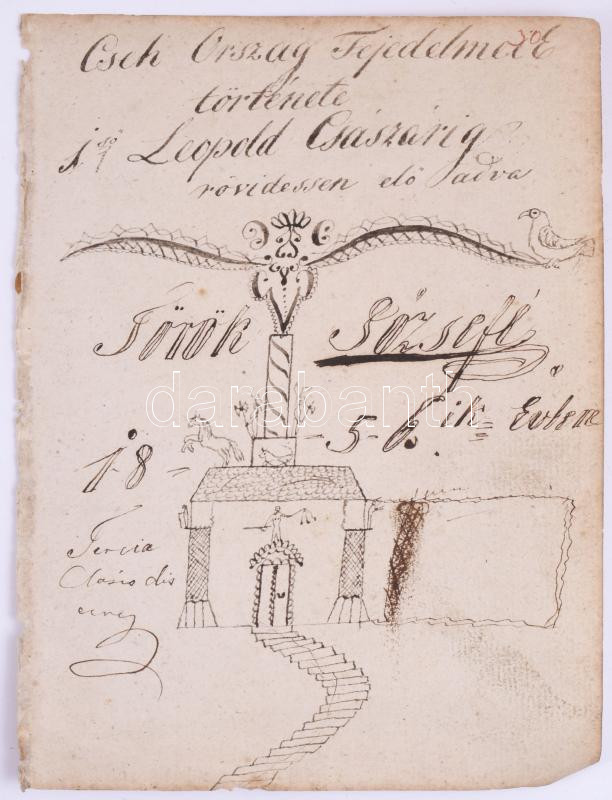 Cseh Ország Fejedelmei
20
története
1ső Leopold Császárig
rövidessen elő adva
Török Józsefé
18-5-6.ik= Évben
Tercia
Clasis dis
darabanth